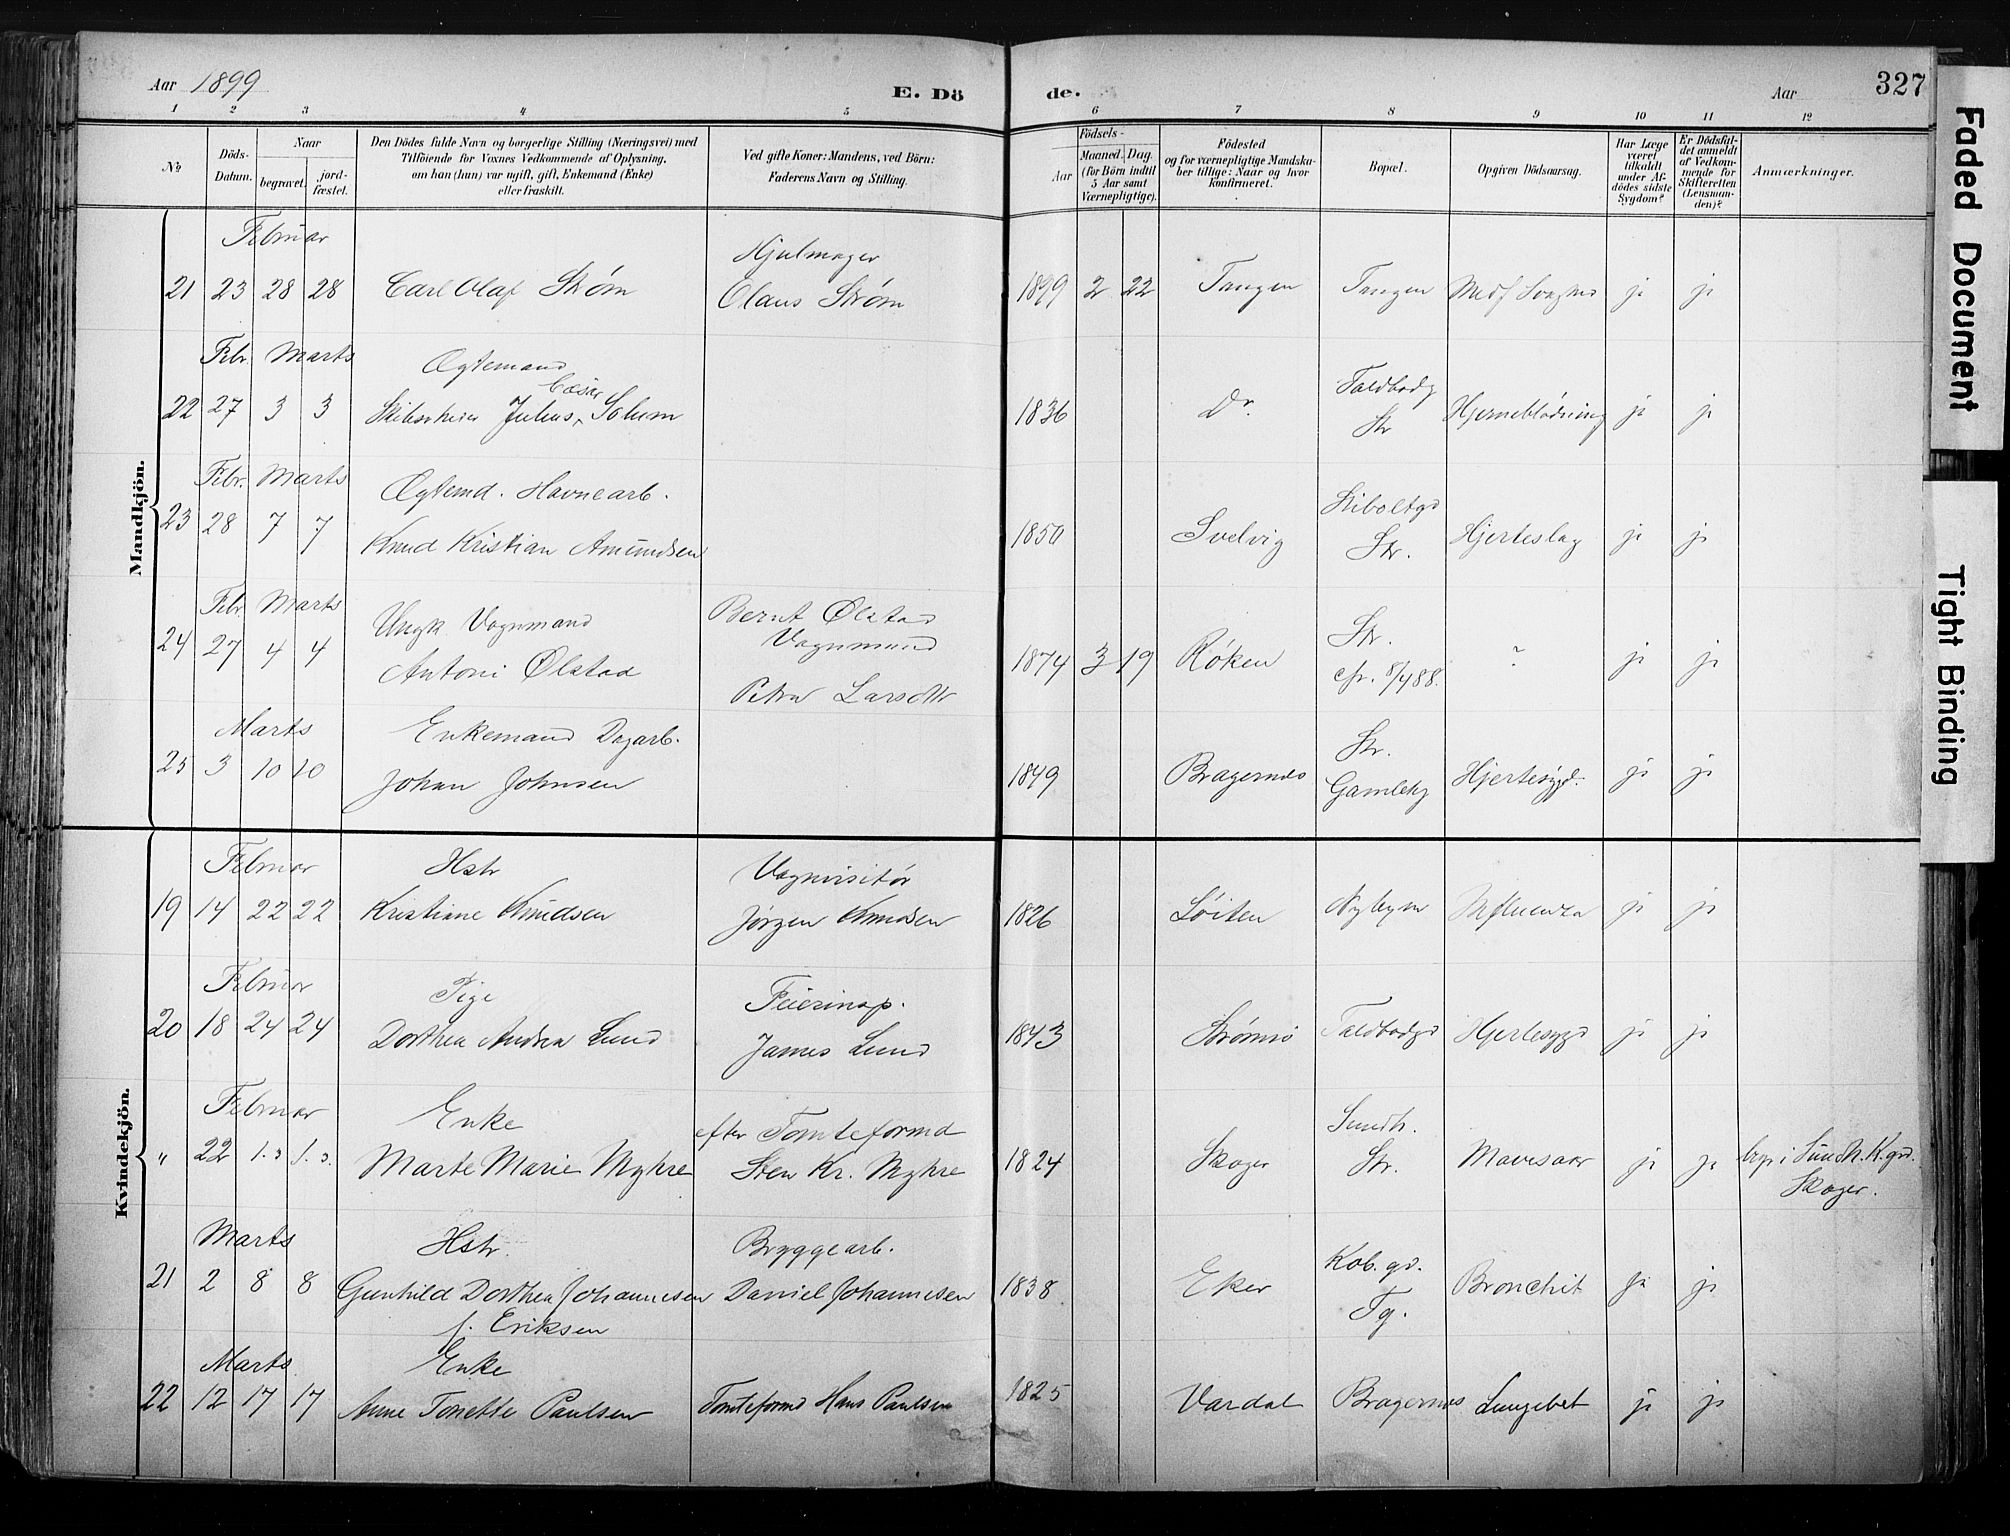 Aar 1899
E. Dö
de.
Aar
327
Faded Document
Tight Binding
1 2 3 4 5 6 7 8 9 10 11 12
No
Döds-Datum.
Naar
begravet.
jord-fæstet.
Den Dödes fulde Navn og borgerlige Stilling (Næringsvei) med
Tilföiende for Voxnes Vedkommende af Oplysning,
om han (hun) var ugift, gift, Enkemand (Enke)
eller fraskilt.
Ved gifte Koner: Mandens, ved Börn:
Faderens Navn og Stilling.
Födsels-
Aar
Maaned. Dag.
(for Börn indtil
5 Aar samt
Værnepligtige).
Födested
og for værnepligtige Mandska-
ber tillige: Naar og hvor
konfirmeret.
Bopæl.
Opgiven Dödsaarsag.
Har Læge
været
tilkaldt
under Af-
dödes sidste
Sygdom?
Er Dödsfal-
det anmeldt
af Vedkom-
mende for
Skifteretten
(Lensman-
den)?
Anmærkninger.
Mandkjön.
Februar
Hjulmager
21 23 28 28 Carl Olaf Strøm Olaus Strøm 1899 2 22 Tangen Tangen Medf Svaghed ja ja
Febr. Marts Ægtemand
Cæsar
22 27 3 3 Julius, Solum 1836 Dr. Toldbodg Str Hjerneblødning ja ja
Febr. Marts Ægtemd. Havnearb.
23 28 7 7 Knud Kristian Amundsen 1850 Svelvig Str. Hjerteslag ja ja
Febr Marts Ungk. Vognmand Bernt Ølstad
Vognmand
24 27 4 4 Antoni Ølstad 1874 3 19 Røken Str. cfr. 8/4 88. ? ja ja
Petra Larsdtr
Marts Enkemand Dagarb.
25 3 10 10 Johan Johnsen 1849 Bragernes Str. Gamleby Hjertesygd. ja ja
Kvindekjön.
Februar Hstr Vognvisitør
19 14 22 22 Kristiane Knudsen Jørgen Knudsen 1826 Løiten Nybyen Influenza ja ja
Februar Pige Feierinsp.
20 18 24 24 Dorthea Andrea Lund James Lund 1843 Strømsø Toldbodgd Hjertesygd ja ja
Februar Enke efter Tomteformd
" 22 1.3 1.3. Marte Marie Myhre Sten Kr. Myhre 1824 Skoger Sundh. Str. Mavesaar ja ja i Sundh. K.gd. Skoger.
Marts Hstr. Bryggearb.
21 2 8 8 Gunhild Dorthea Johannesen Daniel Johannesen 1838 Eker Kob. gd. Tg. Bronchit ja ja
f. Eriksen
Marts Enke
22 12 17 17 Anne Tonette Paulsen Tomteformd Hans Paulsen 1825 Vardal Bragernes Lungebet ja ja